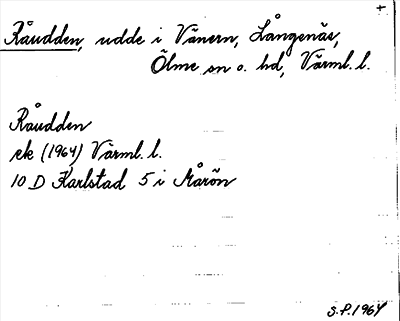 +
Råudden, udde i Vänern, Långenäs,
Ölme sn o. hd, Värml. l.
Råudden
ek (1964) Värml. l.
10 D Karlstad 5 i Mårön
S.P. 1964